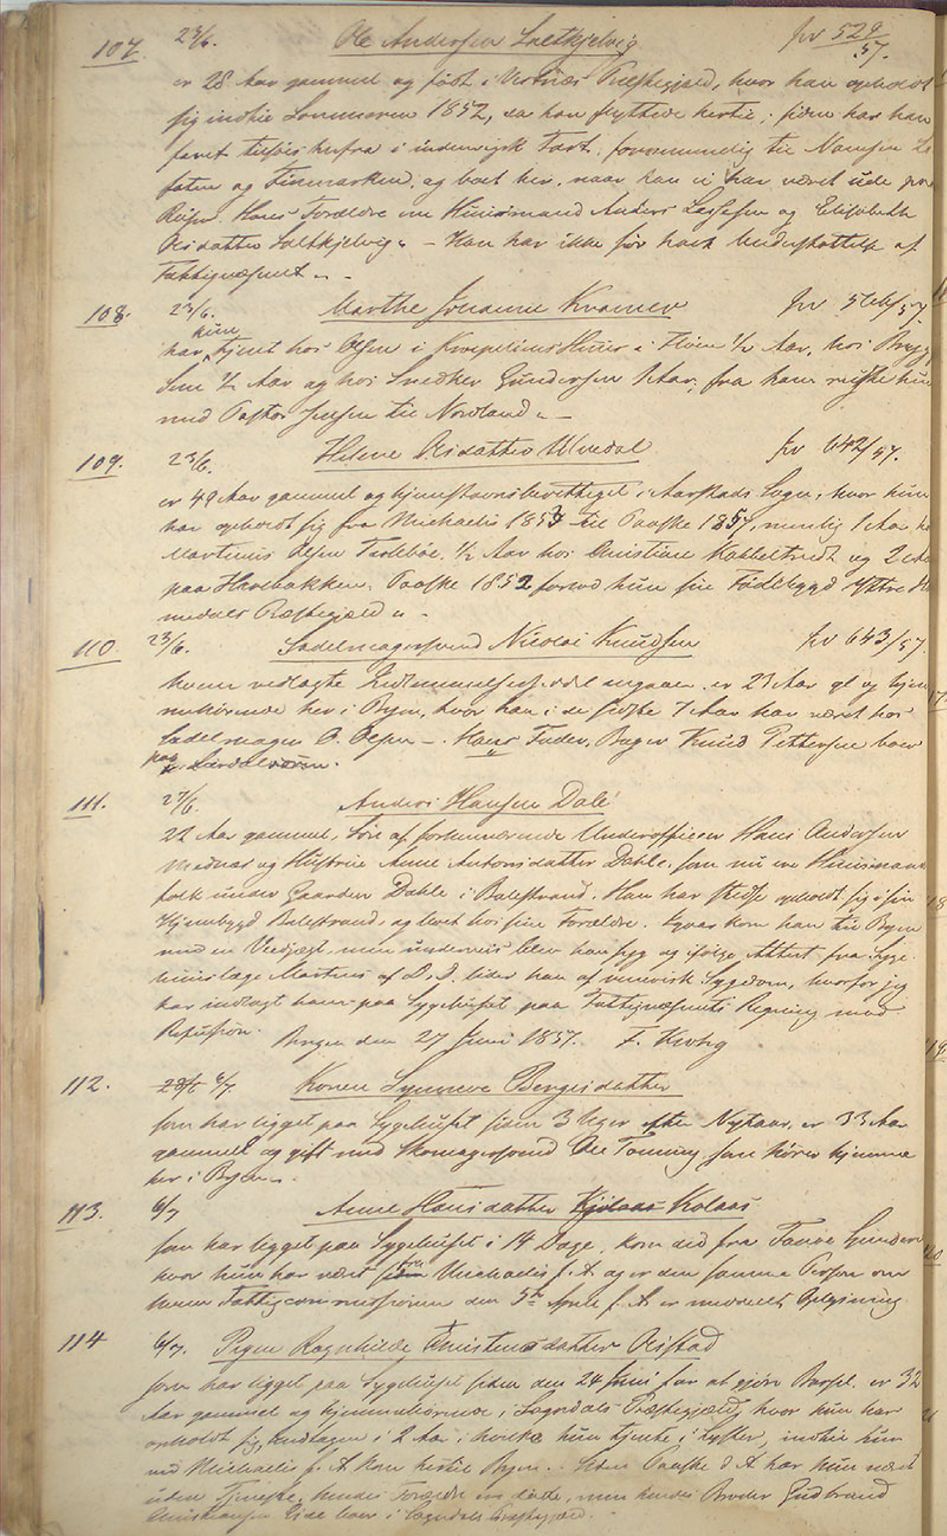 107. 23/6. Ole Andersen Saltkjelvig pr 529/57.
er 28 Aar gammel og født i Vestnæs Præstegjæld, hvor han opholdt
sig indtil Sommeren 1852, da han flyttede hertil; siden har han
faret tilsøes herfra i indenrigsk Fart, fornemmelig til Namsen Lo
foten og Finmarken, og boet her, naar han ei har været ude paa
Reiser. Hans Forældre ere Huusmand Anders Lassesen og Elisabeth
Olsdatter Saltkjelvig. – Han har ikke før havt Understøttelse af
Fattigvæsenet. –
108. 23/6. Marthe Johanne Kramer pr 566/57.
har kun tjent hos Olsen i Huus i 1/2 Aar, hos
1/2 Aar og hos Snedker Gundersen 1 Aar; fra ham reiste hun
med Pastor Jensen til Nordland. –
109. 23/6. Helene Olsdatter pr 642/57.
er 49 Aar gammel og hjemstavnsberettiget i Aarstads Sogn, hvor hun
har opholdt sig fra Michaelis 1853 til Paaske 1857, nemlig 1 Aar
Martinus Olsen 1/2 Aar hos Christian og 2
paa Havebakken. Paaske 1852 forlod hun sin Fødebygd Yttre
medals Præstegjæld. –
110. 23/6. Sadelmagersvend Nicolai Knudsen pr 643/57.
hvem vedlagte angaaer, er 23 Aar gl og hjem
mehørende her i Byen, hvor han i de sidste 7 Aar har været hos
Sadelmager O. Olsen –. Hans Fader, Bager Knud Pettersen boer
paa
111. 27/6. Anders Hansen Dale
22 Aar gammel, Søn af forhenværende Underofficeer Hans Andersen
og Hustrue Anne Antonsdatter Dahle, som nu ere Huusmands
folk under Gaarden Dahle i Balestrand. Han har stedse opholdt sig i sin
Hjembygd Balestrand, og levet hos sine Forældre. Igaar kom han til Byen
med en Vedjægt, men underveis blev han syg og ifølge Attest fra Syge
huuslæge Martens af D. D. lider han af venerisk Sygdom, hvorfor jeg
har indlagt ham paa Sygehuset paa Fattigvæsenets Regning mod
Refusion. Bergen den 27 Juni 1857. F. Krohg
112. 23/6 6/7. Konen Synneve Bergesdatter
som har ligget paa Sygehuset siden 3 Uger efter Nytaar, er 33 Aar
gammel og gift med Skomagersvend Ole Tonning, som hører hjemme
her i Byen. –
113. 6/7 Anne Hansdatter Kjolaas Kolaas
som har ligget paa Sygehuset i 14 Dage, kom did fra
hvor hun har været siden Michaelis f. A. og er den samme Person om
hvem Fattigcommissionen den 5te April f. A. er meddeelt Oplysning
114 6/7. Pigen Ragnhilde Christensdatter Ølstad
som har ligget paa Sygehuset siden den 24 Juni for at gjøre Barsel, er 32
Aar gammel og hjemmehørende i Sogndals Præstegjæld, hvor hun har
opholdt sig, undtagen i 2 Aar i hvilke hun tjente i Lyster, indtil hun
ved Michaelis f. A. kom hertil Byen. Siden Paaske d. A. har hun været
uden Tjeneste. Hendes Forældre ere døde, men hendes Broder Gudbrand
Christensen boer i Sogndals Præstegjæld.